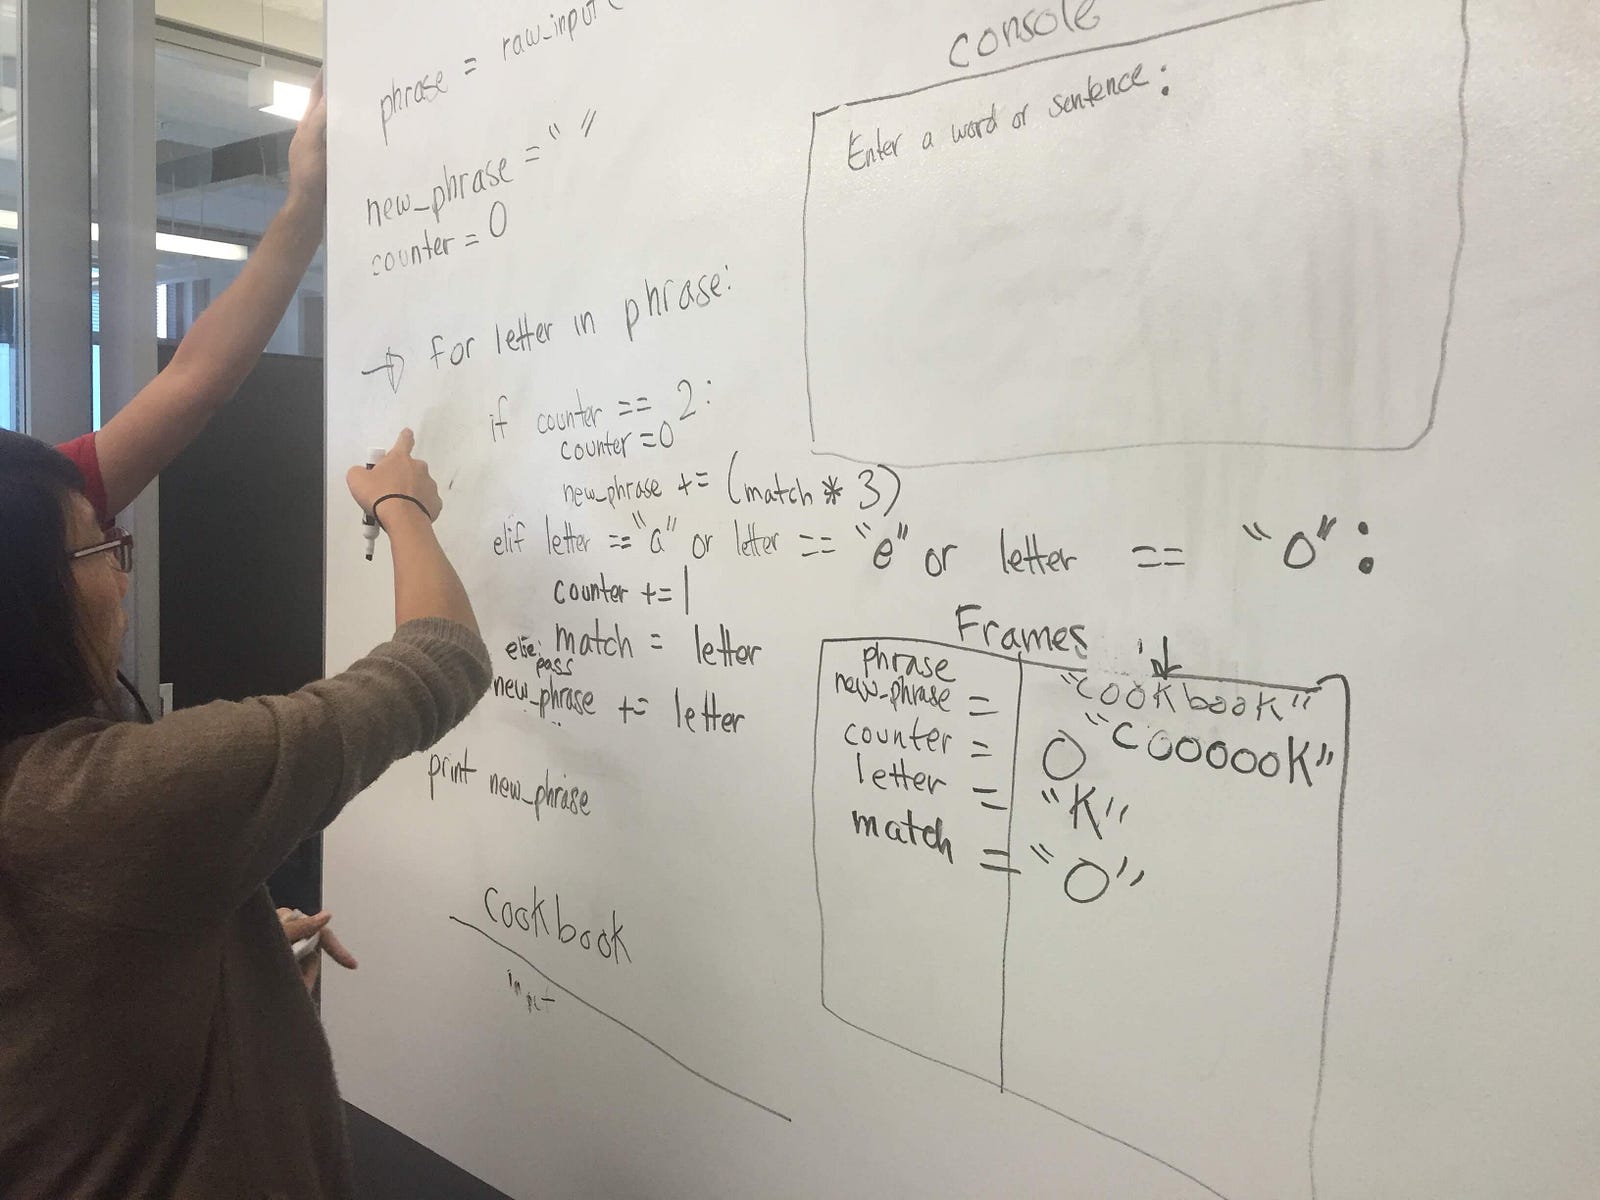 phrase = raw_input(
new_phrase = " "
counter = 0
for letter in phrase:
if counter == 2:
counter = 0
new_phrase += (match * 3)
elif letter == "a" or letter == "e" or letter == "o":
counter += 1
match = letter
else:
pass
new_phrase += letter
print new_phrase
cookbook
console
Enter a word or sentence:
Frames
phrase "cookbook"
new_phrase = "coooook"
counter = 0
letter = "k"
match = "o"